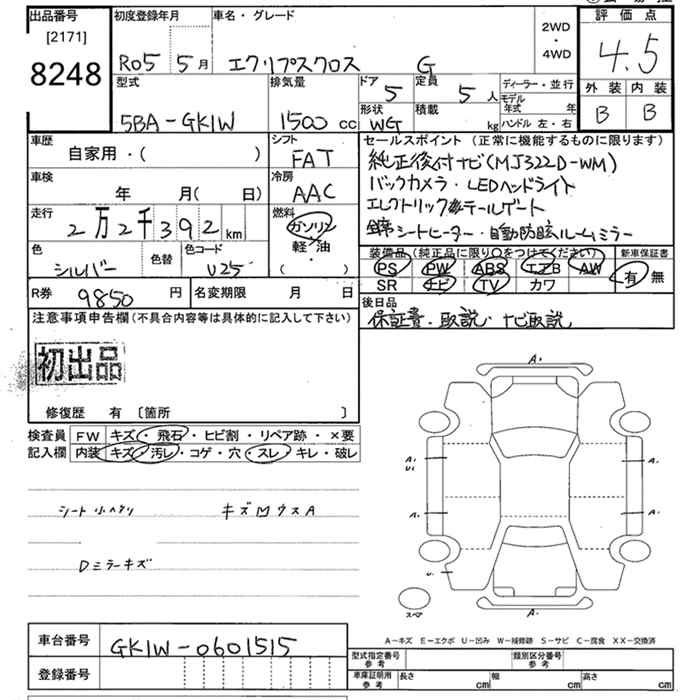 出品番号
[2171]
8248
初度登録年月
R05 5月
車名・グレード
エクリプスクロス G
2WD
・
4WD
評価点
4.5
外装 内装
B B
型式
5BA-GK1W
排気量
1500 cc
ドア 5
定員 5 人
形状 WG
積載 kg
ディーラー・並行
モデル年式 年
ハンドル 左・右
車歴
自家用・( )
シフト
FAT
車検
年 月( 日)
冷房
AAC
走行
2万2千392km
燃料
ガソリン
軽・油
・
( )
色
シルバー
色替
色コード
U25
R券 9850 円
名変期限 月 日
セールスポイント(正常に機能するものに限ります)
純正後付ナビ(MJ322D-WM)
バックカメラ・LEDヘッドライト
エレクトリックテールゲート
シートヒーター・自動防眩ルームミラー
装備品(純正品に限り○をつけてください)
PS PW ABS エアB AW
SR ナビ TV カワ
新車保証書
有・無
後日品
保証書・取説、ナビ取説、
注意事項申告欄(不具合内容等は具体的に記入して下さい)
初出品
修復歴 有 〔箇所 〕
検査員記入欄
FW キズ・飛石・ヒビ割・リペア跡・×要
内装 キズ・汚レ・コゲ・穴・スレ・キレ・破レ
シート小ヘタリ
キズ凹ウスA
Dミラーキズ
A.
A.
U.
A.
A.
A.
U.
A.
スペア
A-キズ E-エクボ U-凹み W-補修跡 S-サビ C-腐食 XX-交換済
車台番号
GK1W-0601515
登録番号
型式指定番号 参考
類別区分番号 参考
車庫証明用 参考
長さ cm
幅 cm
高さ cm